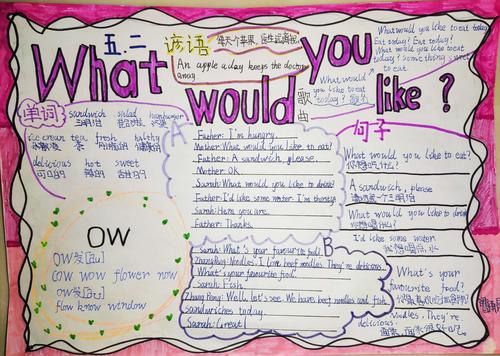 五.二
谚语
每天个苹果，医生远离我
An apple a day keeps the doctor
away
What would you like ?
歌曲
What would you like to eat today
Eat today? Eat today?
What would you like to eat
today? Something sweet
to eat
What would
you like to eat
today?
单词
sandwich salad hamburger
三明治
ice cream tea fresh healthy
冰激凌 茶 新鲜的 健康的
delicious hot sweet
可口的 辣的 甜的
OW
OW发[aʊ]
cow wow flower now
ow发[əʊ]
flow know window
A
Father: I'm hungry.
Mother: What would you like to eat?
Father: A sandwich, please.
Mother: OK.
Sarah: What would you like to drink?
Father: I'd like some water. I'm thirsty.
Sarah: Here you are.
Father: Thanks.
B
Sarah: What's your favourite food?
Zhang Peng: Noodles. I love beef noodles. They're delicious.
What's your favourite food.
Sarah: Fish.
Zhang Peng: Well, let's see. We have beef noodles and fish
sandwiches today.
Sarah: Great!
句子
What would you like to eat?
你想吃什么?
A sandwich, please
请给我一个三明治
What would you like to drink
你想喝什么?
I'd like some water.
我想喝水
What's your
favourite food?
Noodles, They're.
delicious.